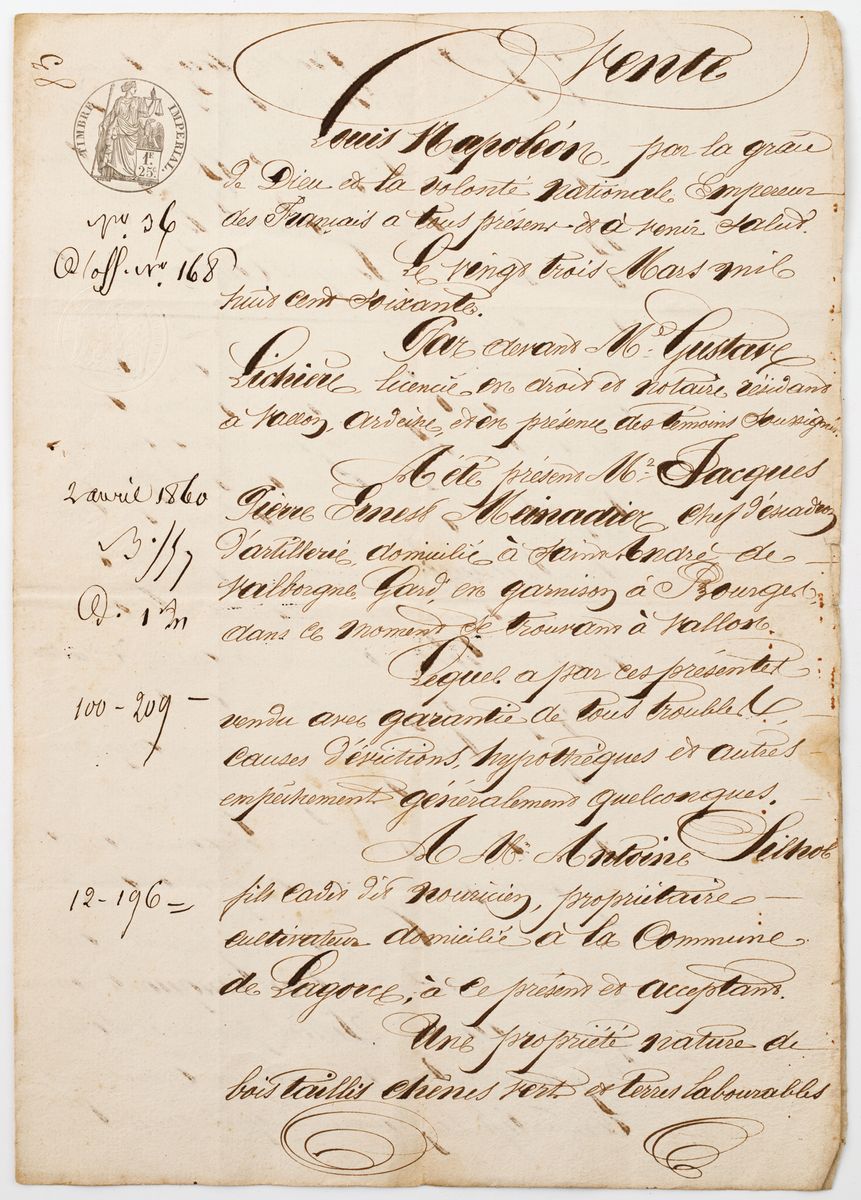 Vente
TIMBRE IMPERIAL
1F
25c
Louis Napoléon, par la grâce
de Dieu et la volonté nationale Empereur
des Français a tous présent et à venir Salut.
No. 36
Le vingt trois Mars mil
No 168
huit cent soixante.
Par devant Me Gustave
Lichière, licencié en droit et notaire résidant
à Vallon, ardèche, et en présence des témoins soussignés.
A été présent Mr Jacques
2 avril 1860
Pierre Ernest Meinadier, chef d'escadron
d'artillerie, domicilié à Saint André de
Valborgne, Gard, en garnison à Bourges,
dans ce moment se trouvant à Vallon.
Lequel a par ces présentes
100 - 209 -
vendu avec garantie de tous troubles,
causes d'évictions, hypothèques et autres
empêchement généralement quelconques.
A Mr Antoine Silhol
12 - 196 =
fils cadet dit nouricien, propriétaire
cultivateur domicilié à la Commune
de Lagorce, à ce présent et acceptant.
Une propriété nature de
bois taillis chênes vert et terres labourables